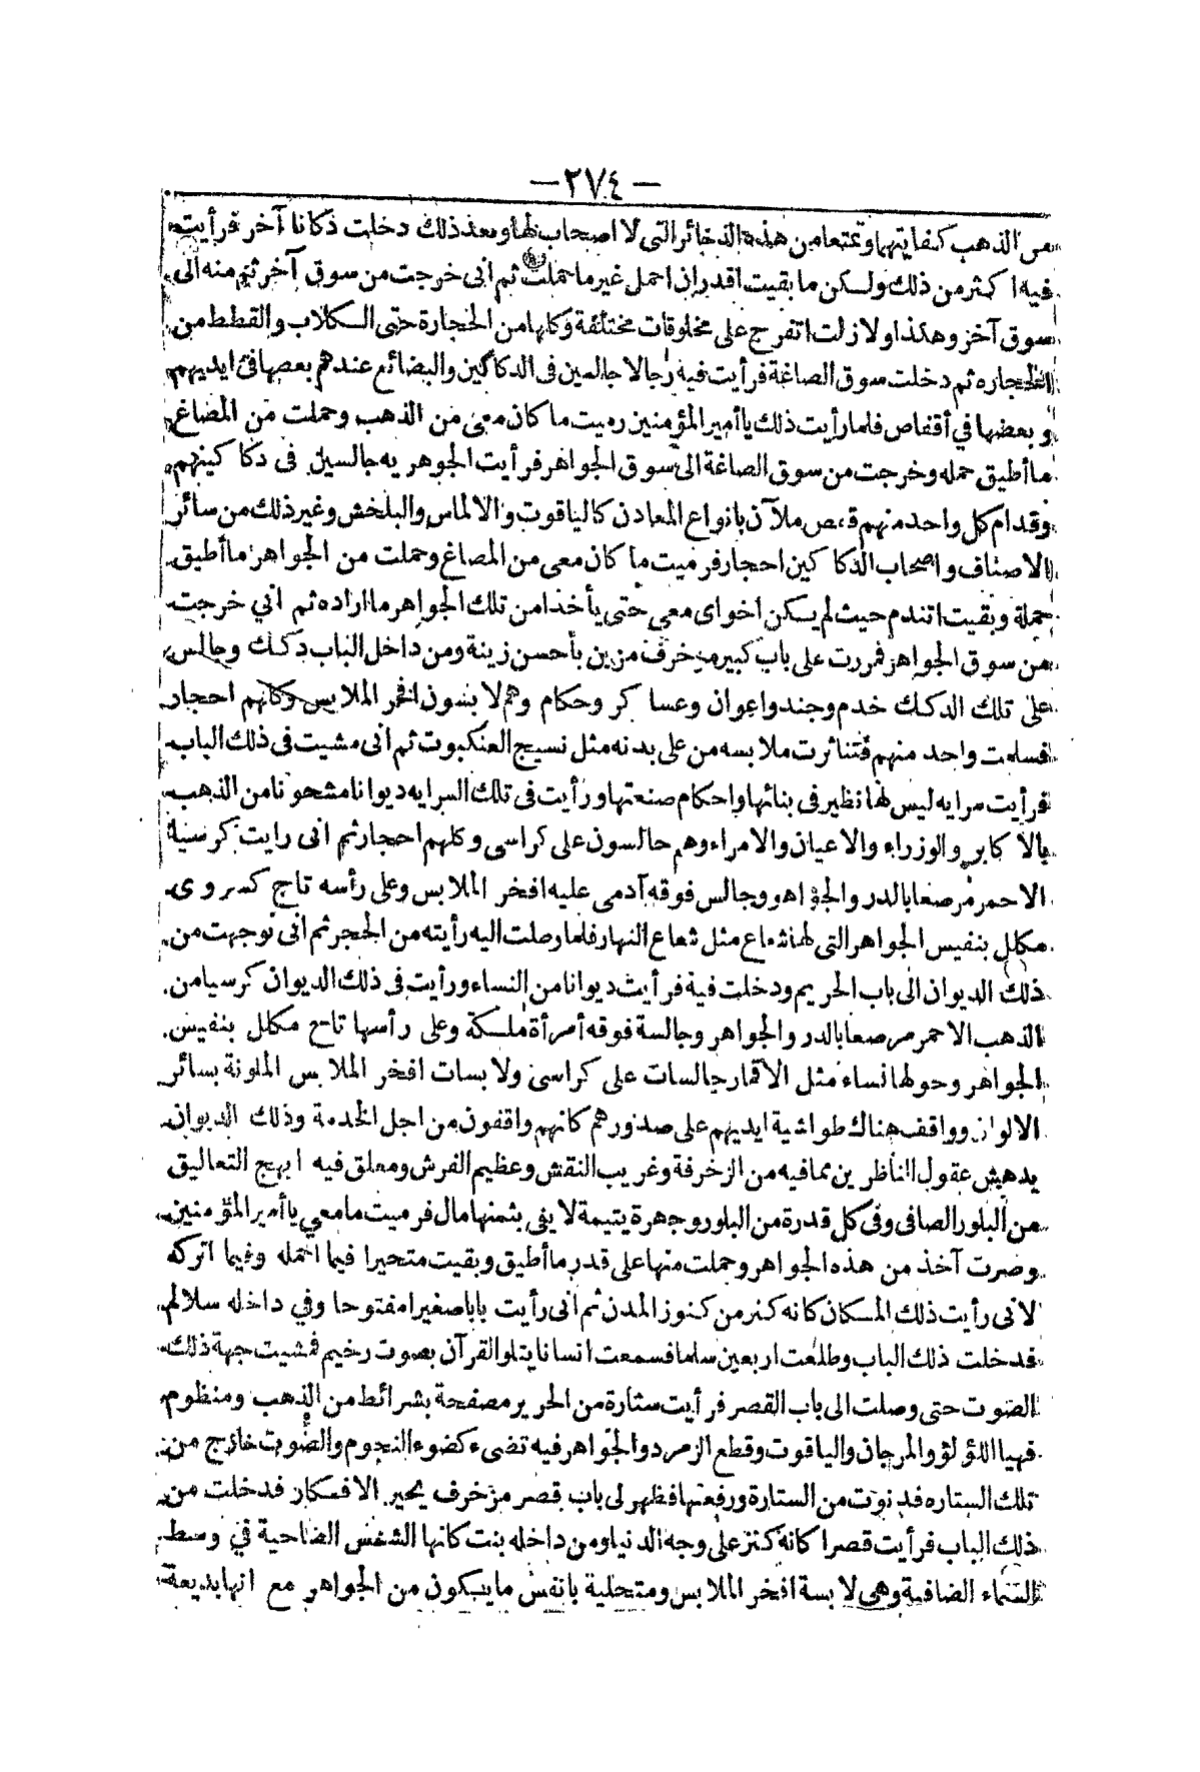 — ٢٧٤ —
من الذهب كفايتهما وتمتعا من هذه الذخائر التى لا اصحاب لها وبعد ذلك دخلت دكانا آخر فرأيت
فيه اكثر من ذلك ولكن ما بقيت اقدر ان احمل غير ما حملت ثم انى خرجت من سوق آخر ثم منه الى
سوق آخر وهكذا ولا زلت اتفرج على مخلوقات مختلفة وكلها من الحجارة حتى الكلاب والقطط من
الحجاره ثم دخلت سوق الصاغة فرأيت فيه رجالا جالسين فى الدكاكين والبضائع عندهم بعضها فى ايديهم
وبعضها في أقفاص فلما رأيت ذلك يا أمير المؤمنين رميت ما كان معى من الذهب وحملت من المصاغ
ما أطيق حمله وخرجت من سوق الصاغة الى سوق الجواهر فرأيت الجوهريه جالسين فى دكاكينهم
وقدام كل واحد منهم قفص ملآن بانواع المعادن كالياقوت والالماس والبلخش وغير ذلك من سائر
الاصناف واصحاب الدكاكين احجار فرميت ما كان معى من المصاغ وحملت من الجواهر ما أطيق
حملة وبقيت اتندم حيث لم يكن اخواى معى حتى يأخذا من تلك الجواهر ما اراده ثم اني خرجت
من سوق الجواهر فمررت على باب كبير مزخرف مزين بأحسن زينة ومن داخل الباب دكك وجالس
على تلك الدكك خدم وجند واعوان وعساكر وحكام وهم لابسون افخر الملابس وكلهم احجار
فسلمت واحد منهم فتناثرت ملابسه من على بدنه مثل نسيج العنكبوت ثم انى مشيت فى ذلك الباب
فرأيت سرايه ليس لها نظير فى بنائها واحكام صنعتها ورأيت فى تلك السرايه ديوانا مشحونا من الذهب
بالاكابر والوزراء والاعيان والامراء وهم جالسون على كراسى وكلهم احجار ثم انى رايت كرسيا
الاحمر مرصعا بالدر والجواهر وجالس فوقه آدمى عليه افخر الملابس وعلى رأسه تاج كسروى
مكلل بنفيس الجواهر التى لها شعاع مثل شعاع النهار فلما وصلت اليه رأيته من الحجر ثم انى توجهت من
ذلك الديوان الى باب الحريم ودخلت فيه فرأيت ديوانا من النساء ورأيت فى ذلك الديوان كرسيا من
الذهب الاحمر مرصعا بالدر والجواهر وجالسة فوقه أمرأة ملكة وعلى رأسها تاج مكلل بنفيس
الجواهر وحولها نساء مثل الاقمار جالسات على كراسى ولابسات افخر الملابس الملونة بسائر
الالوان وواقف هناك طواشية ايديهم على صدورهم كانهم واقفون من اجل الخدمة وذلك الديوان
يدهش عقول الناظرين بما فيه من الزخرفة وغريب النقش وعظيم الفرش ومعلق فيه ابهج التعاليق
من البلور الصافى وفى كل قدرة من البلور وجهرة يتيمة لا يفى بثمنها مال فرميت ما معي يا أمير المؤمنين
وصرت آخذ من هذه الجواهر وحملت منها على قدر ما أطيق وبقيت متحيرا فيما احمله وفيما اتركه
لانى رأيت ذلك المكان كانه كنز من كنوز المدن ثم انى رأيت بابا صغيرا مفتوحا وفي داخله سلالم
فدخلت ذلك الباب وطلعت اربعين سلما فسمعت انسانا يتلو القرآن بصوت رخيم فمشيت جهة ذلك
الصوت حتى وصلت الى باب القصر فرأيت ستارة من الحرير مصفحة بشرائط من الذهب ومنظوم
فهيا اللؤلؤ والمرجان والياقوت وقطع الزمرد والجواهر فيه تضىء كضوء النجوم والصوت خارج من
تلك الستاره فدنوت من الستارة ورفعتها فظهر لى باب قصر مزخرف يحير الافكار فدخلت من
ذلك الباب فرأيت قصرا كانه كنز على وجه الدنيا ومن داخله بنت كانها الشمس الضاحية في وسط
السماء الصافية وهى لابسة افخر الملابس ومتحلية بانفس ما يكون من الجواهر مع انها بديعة